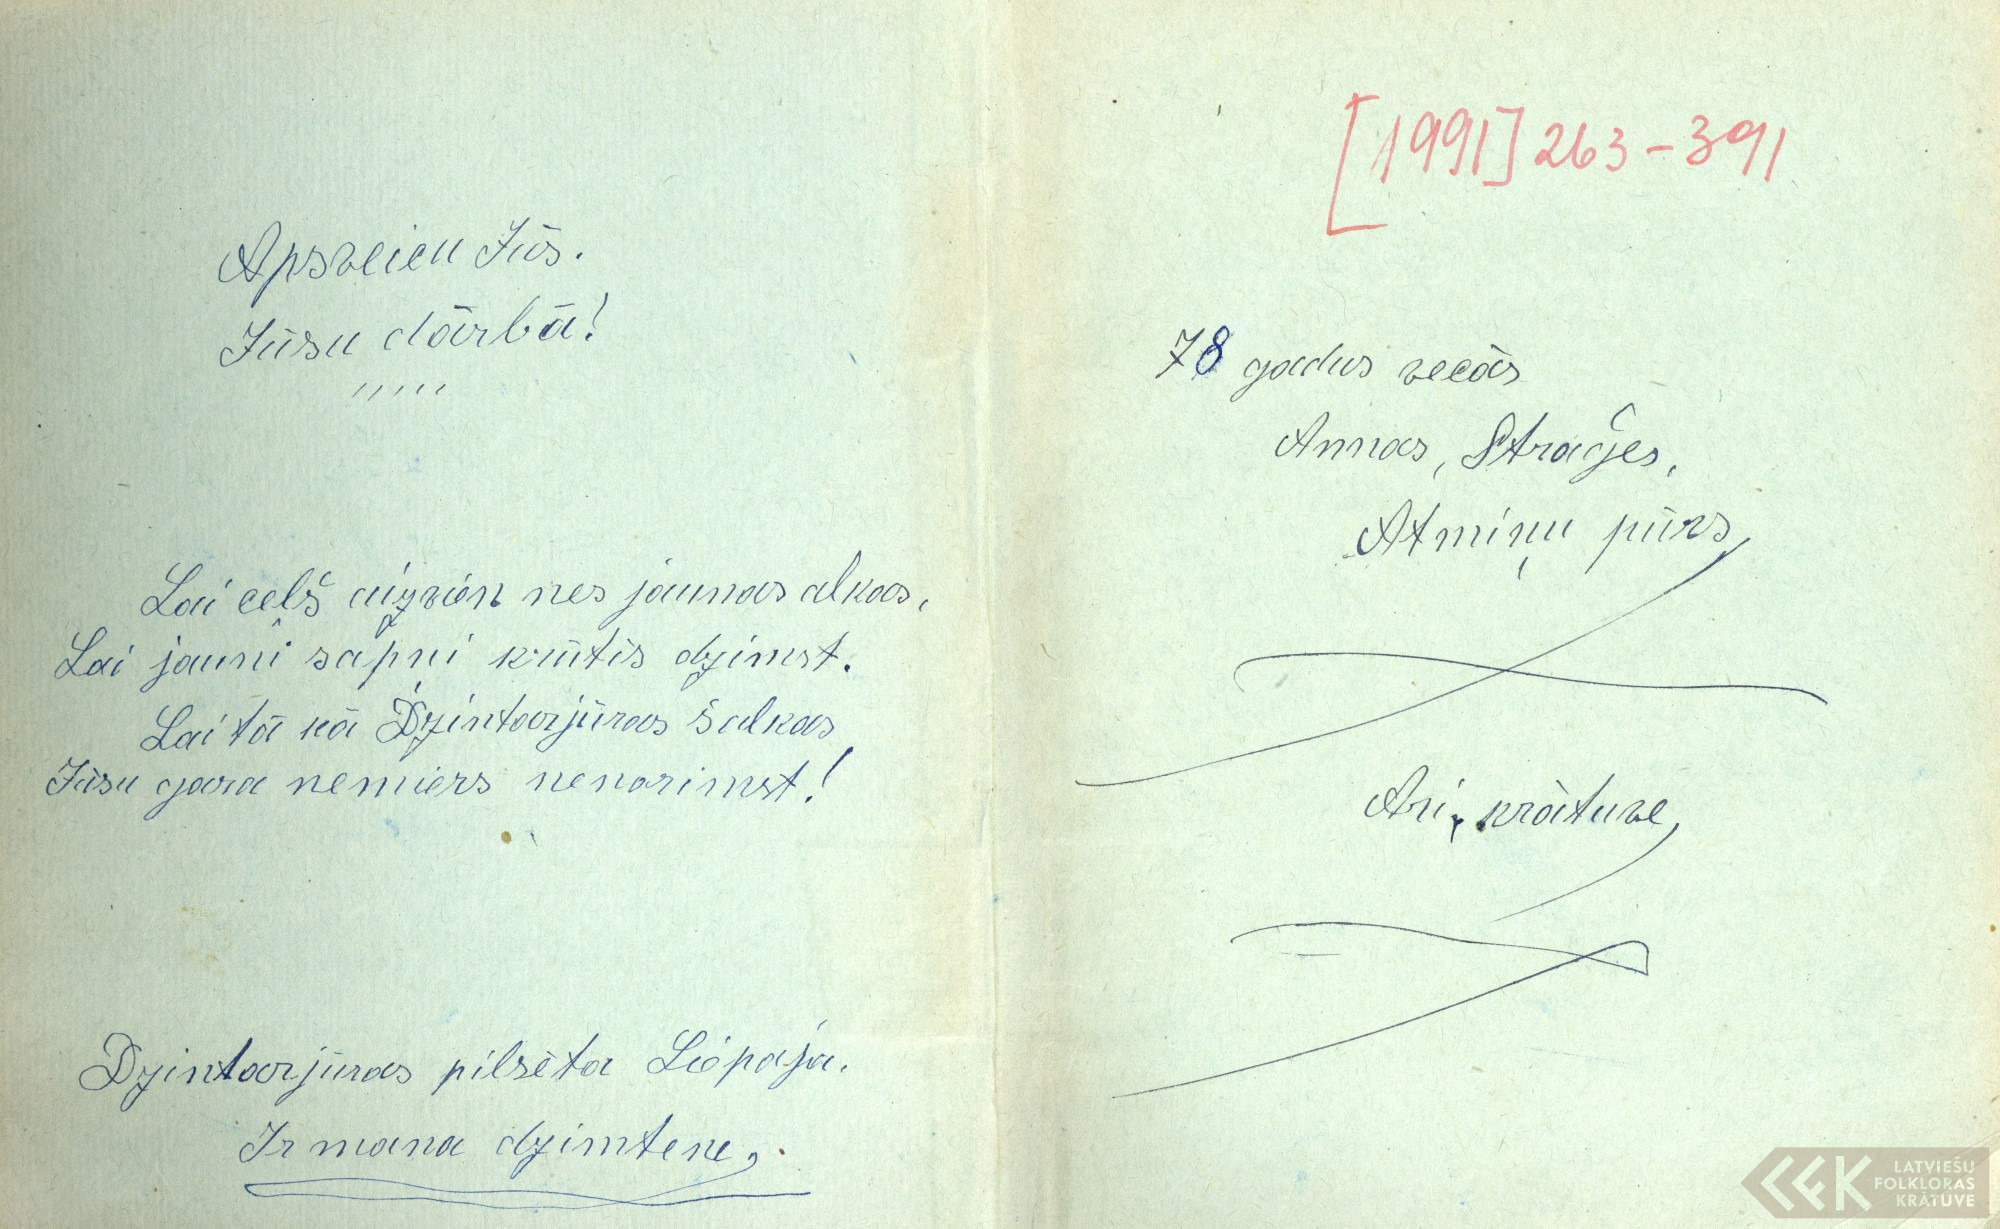 Apsveicu Jūs.
Jūsu dārbā!
Lai ceļš aizvien nes jaunas alkas,
Lai jauni sapņi krūtīs dzimst.
Lai tā kā Dzintarjūras šalkas
Jūsu gara nemiers nenorimst!
Dzintarjūras pilsēta Liēpaja.
Ir mana dzimtene,
[1991] 263-391
78 gadus vecās
Annas, Stražes,
Atmiņu pūrs,
Ari, krātuve,
LATVIEŠU
FOLKLORAS
KRĀTUVE